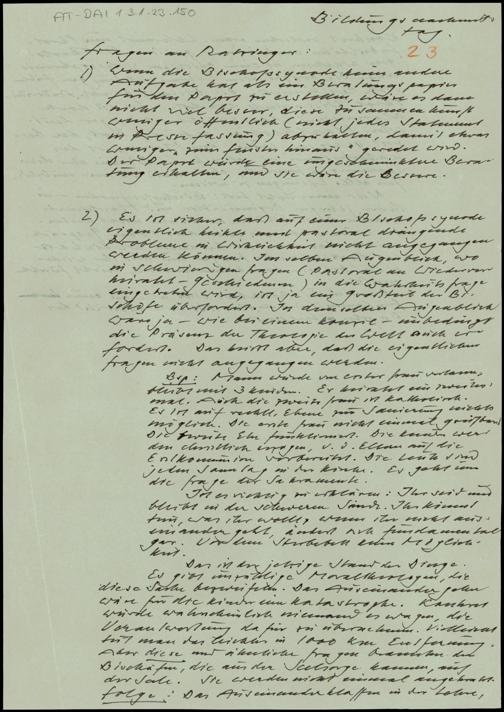 AT-DAI 1.3.1-23.150
Bildungsnachmit-
tag.
23
Fragen an Ratzinger:
1) Wenn die Bischofssynode keine andere
Aufgabe hat als ein Beratungspapier
für den Papst zu erstellen, wäre es dann
nicht viel besser, diese Zusammenkunft
weniger öffentlich (nicht jedes Statement
in Pressefassung) abzuhalten, damit etwas
weniger "zum Fenster hinaus" geredet wird.
Der Papst würde eine ungeschminktere Bera-
tung erhalten, und sie wäre die Bessere.
2) Es ist sicher, daß auf einer Bischofssynode
eigentlich heikle und pastoral drängende
Probleme in Wirklichkeit nicht angegangen
werden können. Im selben Augenblick, wo
in schwierigen Fragen (Pastoral an Wiederver-
heiratet-Geschiedenen) in die Wahrheitsfrage
eingetreten wird, ist ja ein Großteil der Bi-
schöfe überfordert. Im demselben Augenblick
wäre ja - wie bei einem Konzil - unbedingt
die Präsenz der Theologie der Welt auch er-
fordert. Das heißt aber, daß die eigentlichen
Fragen nicht angegangen werden.
Bsp.: Mann wurde von erster Frau verlassen,
bleibt mit 3 Kindern. Er heiratet ein zweites-
mal. Auch die zweite Frau ist katholisch.
Es ist auf rechtl. Ebene zur Sanierung nichts
möglich. Die erste Frau nicht einmal
Die zweite Ehe funktioniert. Die Kinder wer-
den christlich erzogen, v. d. Eltern auf die
Erstkommunion vorbereitet. Die Leute sind
jeden Sonntag in der Kirche. Es geht um
die Frage der Sakramente.
Ist es richtig zu erklären: Ihr seid und
bleibt in der schweren Sünde. Ihr könnt
tun, was ihr wollt, wenn ihr nicht aus-
einander geht, ändert sich fundamental
gar. Vor dem Sterbebett keine Möglich-
keit.
Das ist der jetzige Stand der Dinge.
Es gibt unzählige Moraltheologen, die
diese Sache bezweifeln. Das Auseinandergehen
wäre für die Kinder eine Katastrophe. Konkret
würde wahrscheinlich niemand es wagen, die
Verantwortung dafür zu übernehmen. Vielleicht
tut man das leichter in 1000 km Entfernung.
Aber diese und ähnliche Fragen brennen den
Bischöfen, die aus der Seelsorge kommen, auf
der Seele. Sie werden nicht einmal angekratzt.
Folge: Das Auseinanderklaffen in der Lehre,